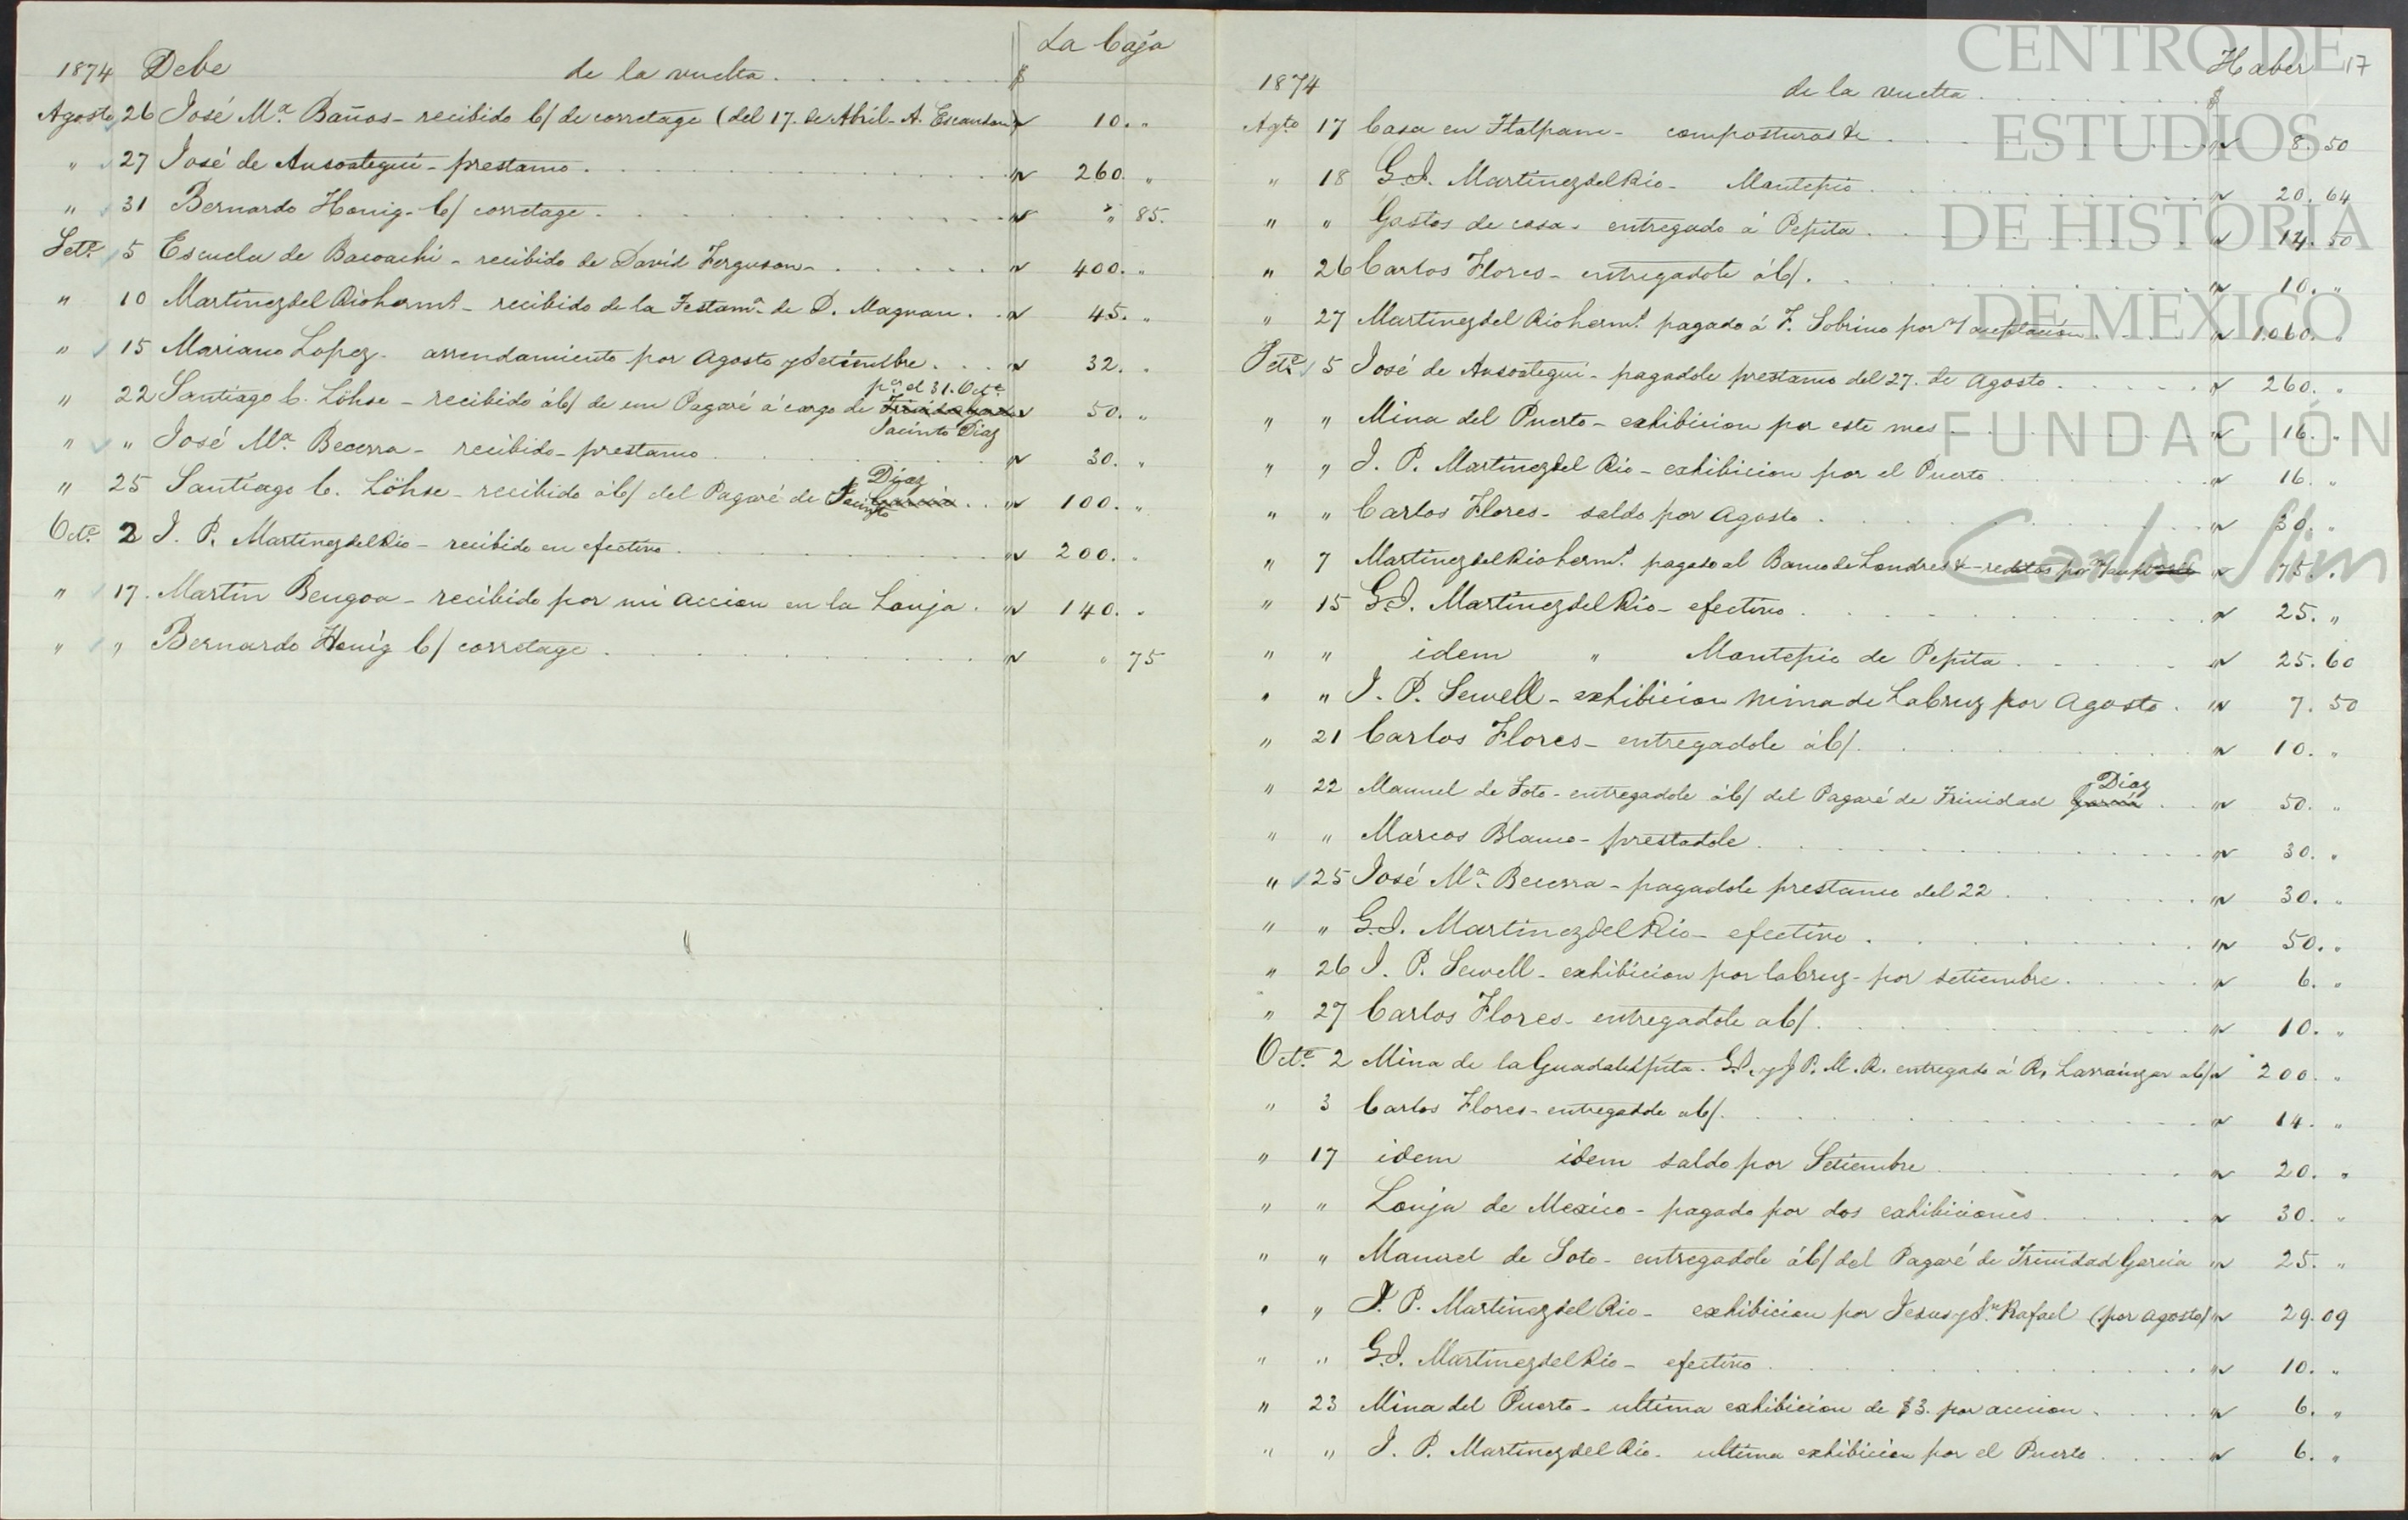 La Caja
1874 Debe de la vuelta $
Agosto 26 José Mª. Baños - recibido C/ de corretage (del 17. de Abril - A. Escandon) " 10. "
" 27 José de Ansoategui - prestamo " 260. "
" 31 Bernardo Honig - C/ corretage " " 85.
Sete. 5 Escuela de Bacoachi - recibido de David Ferguson - " 400. "
" 10 Martinez del Rio herms. - recibido de la Testama. de D. Magnan " 45. "
" 15 Mariano Lopez - arrendamiento por Agosto y Setiembre " 32. "
pa. el 31. Octe.
" 22 Santiago C. Löhse - recibido á C/ de un Pagaré á cargo de " 50. "
Jacinto Diaz
" " José Mª. Becerra - recibido - prestamo " 30. "
Diaz
" 25 Santiago C. Löhse - recibido á C/ del Pagaré de Jacinto Garcia " 100. "
Octe. 2 J. P. Martinez del Rio - recibido en efectivo " 200. "
" 17. Martin Bengoa - recibido por mi accion en la Lonja " 140. "
" " Bernardo Honig C/ corretage " " 75
Haber 17
1874 de la vuelta $
Agto 17 Casa en Tlalpam - composturas &c " 8. 50
" 18 G. I. Martinez del Rio - Montepio " 20. 64
" " Gastos de casa - entregado á Pepita " 14. 50
" 26 Carlos Flores - entregadole á C/. " 10. "
" 27 Martinez del Rio herms. pagado á F. Sobrino por aceptacion " 1.060. "
Sete. 5 José de Ansoategui - pagadole prestamo del 27. de Agosto " 260. "
" " Mina del Puerto - exhibicion por este mes " 16. "
" " J. P. Martinez del Rio - exhibicion por el Puerto " 16. "
" " Carlos Flores - saldo por Agosto " 30. "
" 7 Martinez del Rio herms. pagado al Banco de Londres &- reditos por " 75. "
" 15 G. I. Martinez del Rio - efectivo " 25. "
" " idem " Montepio de Pepita " 25. 60
" " J. P. Sewell - exhibicion Mina de La Cruz por Agosto " 7. 50
" 21 Carlos Flores - entregadole á C/. " 10. "
Diaz
" 22 Manuel de Soto - entregadole á C/ del Pagaré de Trinidad Garcia " 50. "
" " Marcos Blanco - prestadole " 30. "
" 25 José Mª. Becerra - pagadole prestamo del 22 " 30. "
" " G. I. Martinez del Rio - efectivo " 50. "
" 26 J. P. Sewell - exhibicion por la Cruz - por setiembre " 6. "
" 27 Carlos Flores - entregadole a C/. " 10. "
Octe. 2 Mina de la Guadalupita. G. I. y J. P. M. R. entregado á R. Larrainzar a C/ " 200. "
" 3 Carlos Flores - entregadole a C/. " 14. "
" 17 idem idem saldo por Setiembre " 20. "
" " Lonja de Mexico - pagado por dos exhibiciones " 30. "
" " Manuel de Soto - entregadole á C/ del Pagaré de Trinidad Garcia " 25. "
" " J. P. Martinez del Rio - exhibicion por Jesus y Sn. Rafael (por Agosto) " 29. 09
" " G. I. Martinez del Rio - efectivo " 10. "
" 23 Mina del Puerto - ultima exhibicion de $3. por accion " 6. "
" " J. P. Martinez del Rio - ultima exhibicion por el Puerto " 6. "
CENTRO DE
ESTUDIOS
DE HISTORIA
DE MEXICO
FUNDACIÓN
Carlos Slim